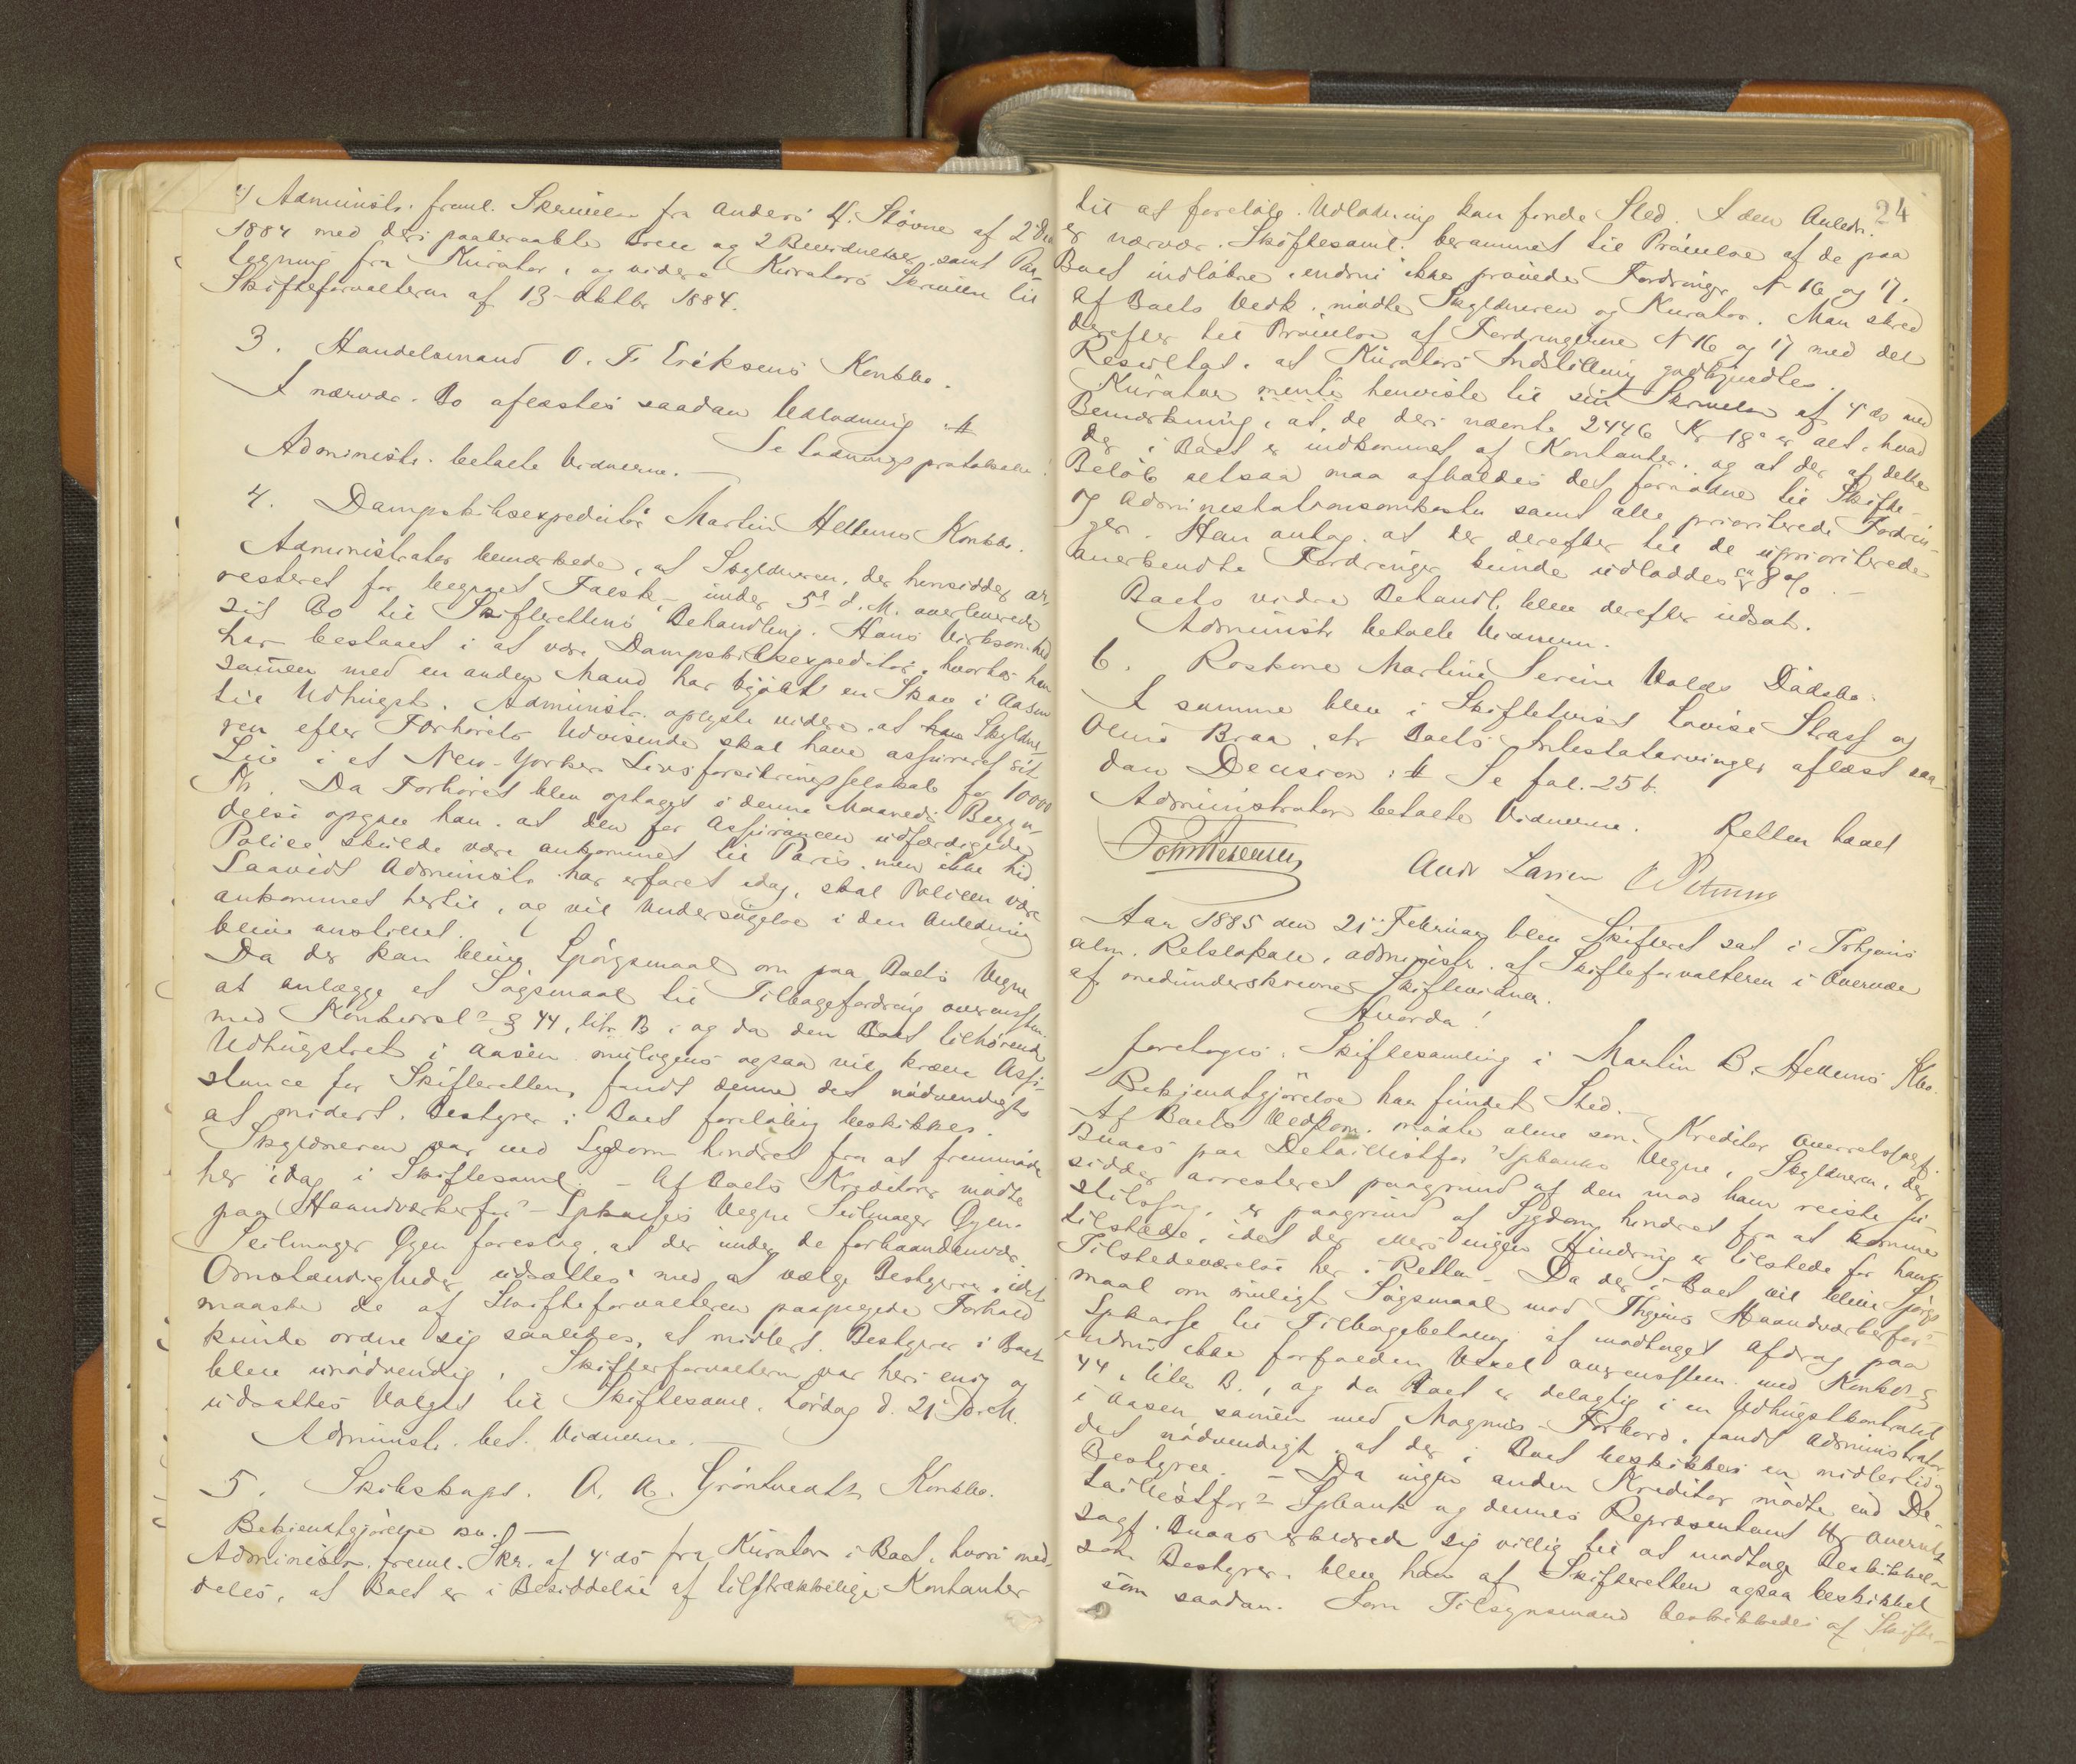 4) Administr. freml. Skrivelse fra Anders H. Støvne af 2den
1884 med deri paaberaabte Breve og 2 Bevidnelser, samt Paa-
tegning fra Kurator, og videre Kurators Skrivelse til
Skifteforvalteren af 13 Oktbr 1884.
3. Handelsmand O. F. Eriksens Konkbo.
I nærvær. Bo aflæstes saadan Udlodning :#
Se Lodningsprotokolen!
Administr. betalte Vidnerne. —
4. Dampskibsexpeditør Martin Hellems Konkbo.
Administrator bemærkede, at Skyldneren, der hensidder ar-
resteret for begaaet Falsk, under 5te d. M. overleverede
sit Bo til Skifterettens Behandling. Hans Virksomhed
har bestaaet i at være Dampskibsexpeditør, hvorhos han
sammen med en anden Mand har kjøbt en Skov i Aasen
til Udhugst. Administr. oplyste videre at han Skyldne-
ren efter Forhørets Udvisende skal have assureret sit
Liv i et New-Yorker Livsforsikringsselskab for 10000
Kr. Da Forhøret blev optaget i denne Maaneds Begyn-
delse opgav han, at den for Assurancen udfærdigede
Police skulde være ankommet til Paris, men ikke hid
Saavidt Administr. har erfaret idag, skal Policen være
ankommet hertil, og vil Undersøgelse i den Anledning
blive anstillet.
Da der kan blive Spørgsmaal om paa Boets Vegne
at anlægge et Søgsmaal til Tilbagefordring overensstem.
med Konkursl. § 44, litr. B, og da den Boet tilhørende
Udhugstret i Aasen muligens ogsaa vil kræve Assi-
stance for Skifteretten, fandt denne det nødvendigt
at midlert. Bestyrer i Boet foreløbig beskikkes.
Skyldneren var ved Sygdom hindret fra at fremmøde
her idag i Skiftesaml. – Af Boets Kreditorer mødte
paa Haandværkerfor. Spkasses Vegne Seilmager Gyen.
Seilmager Gyen foreslog, at der under de forhaandenvær.
Omstændigheder udsættes med at vælge Bestyrer, idet
maaske de af Skifteforvalteren paapegede Forhold
kunde ordne sig saaledes, at midlert. Bestyrer i Boet
blev unødvendig. Skifteforvalteren var heri enig og
udsattes Valget til Skiftesaml. Lørdag d. 21 d. M.
Administr. bet. Vidnerne. —
5. Skibskapt. A. A. Grøntvedts Konkbo.
Bekjendtgjørelse
Administr. freml. Skr. af 4 ds fra Kurator i Boet, hvori med-
deles, at Boet er i Besiddelse af tilstrækkelige Kontanter
24
til at foreløb. Udlodning kan finde Sted. I den Anledn.
er nærvær. Skiftesaml. berammet til Prøvelse af de paa
Boet indløbne, endnu ikke prøvede Fordringer N 16 og 17.
Af Boets Vedk. mødte Skyldneren og Kurator. Man skred
derefter til Prøvelse af Fordringerne N 16 og 17 med det
Resultat, at Kurators Indstilling godkjendtes.
Kurator mente henviste til sin Skrivelse af 4 ds med
Bemærkning, at de deri nævnte 2446 Kr 18 ø er alt, hvad
der i Boet er indkommet af Kontanter, og at der af dette
Beløb altsaa maa afholdes det fornødne til Skifte-
og Administrationsomkoster samt alle prioriterede Fordrin-
ger. Han antog, at der derefter til de uprioriterede
anerkendte Fordringer kunde udloddes ca 8 %. —
Boets videre Behandl. blev derefter udsat.
Administr. betalte Vidnerne.
6. Roskone Martine Serine Valds Dødsbo.
I samme blev i Skiftetvist Lovise Strass og
Oline Braa ctr Boets Intestatarvinger aflæst saa-
dan Decision :# Se fol. 25 b.
Administrator betalte Vidnerne.
Retten hævet
And. Larsen
Aar 1885 den 21 Februar blev Skifteret sat i Trhjems
alm. Retslokale, administr. af Skifteforvalteren i Overvær
af medunderskrevne Skiftevidner.
Hvorda!
foretoges, Skiftesamling i Martin B. Hellems Kbo.
Bekjendtgjørelse har fundet Sted. —
Af Boets Vedkom. mødte alene som Kreditor Overretssagf.
Buaas paa Detaillistfor. Spbanks Vegne, Skyldneren, der
sidder arresteret paagrund af den mod ham reiste Ju-
stitssag, er paagrund af Sygdom hindret fra at komme
tilstede, idet der ellers ingen Hindring er tilstede for hans
Tilstedeværelse her i Retten. – Da der i Boet vil blive Spørgs-
maal om muligt Søgsmaal mod Thjems Haandværkerfor.
Spkasse til Tilbagebetaling af modtaget Afdrag paa
endnu ikke forfalden Vexel overensstem. med Konkursl. §
44, litr. B., og da Boet er delagtig i en Udhugstkontrakt
i Aasen sammen med Magnus Forbord, fandt Administrator
det nødvendigt, at der i Boet beskikkes en midlertidig
Bestyrer. – Da ingen anden Kreditor mødte end De-
taillistfor. Spbank og dennes Repræsentant Hr Overrets-
sagf. Buaas erklærede sig villig til at modtage Beskikkelse
som Bestyrer, blev han af Skifteretten ogsaa beskikket
som saadan. Som Tilsynsmænd beskikkedes af Skifte-